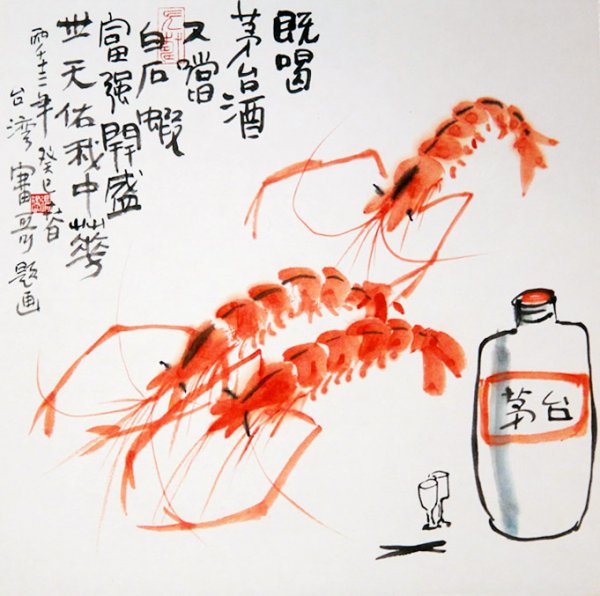 既喝
茅台酒
又嚐
白石蝦
富强開盛
世天佑我中華
两千十三年癸巳春
台灣哥題画
茅台